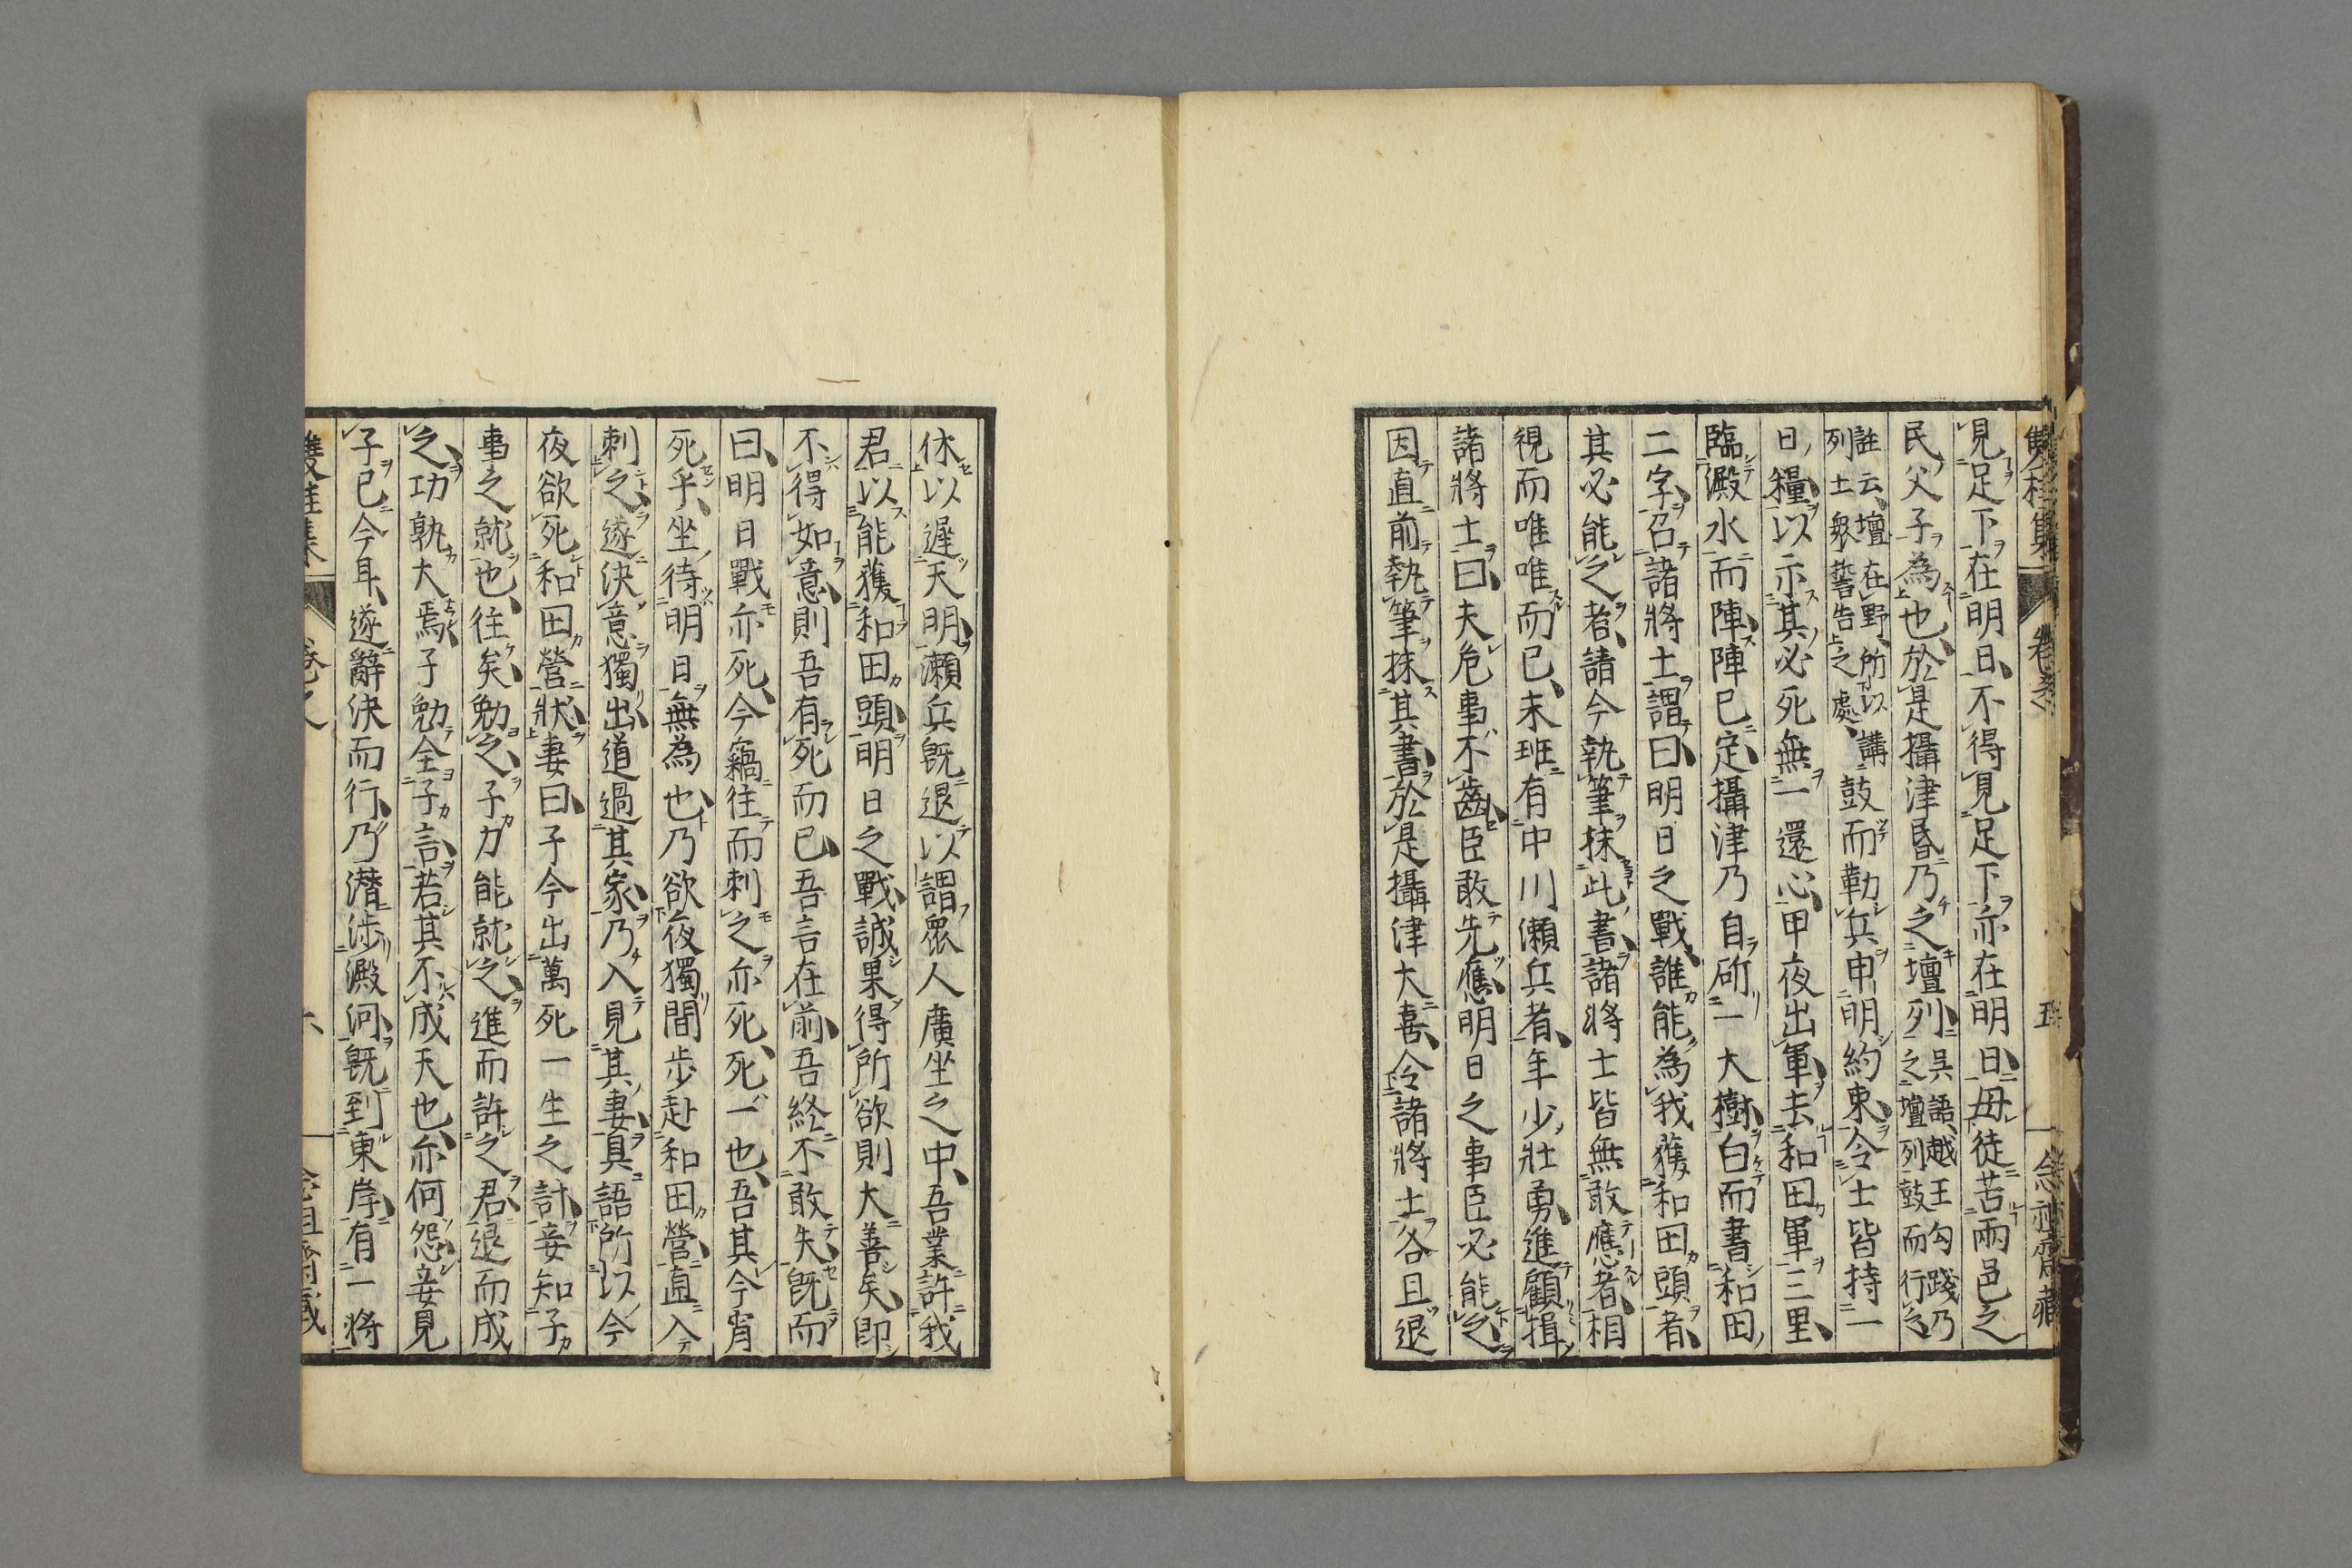 見足下在明日、不得見足下亦在明日、毋徒苦兩邑之
民父子為也、於是攝津昏乃之壇列、吳語、越王勾踐乃之壇列鼓而行之、
註云、壇在野、所以講列士衆誓告之處、鼓而勒兵申明約束、令士皆持一
日糧、以示其必死無一還心、甲夜出軍、去和田軍三里、
臨澱水而陣、陣已定、攝津乃自斫一大樹、白而書和田
二字、召諸將士謂曰、明日之戰、誰能為我獲和田頭者、
其必能之者、請今執筆抹此書、諸將士皆無敢應者、相
視而唯唯而已、末班有中川瀨兵者、年少壯勇、進顧揖
諸將士曰、夫危事不齒、臣敢先應明日之事臣必能之、
因直前執筆抹其書、於是攝津大喜、令諸將士各且退
休以遲天明、瀨兵既退以謂眾人廣坐之中、吾業許我
君以能獲和田頭、明日之戰、誠果得所欲則大善矣、即
不得如意、則吾有死而已、吾言在前、吾終不敢失、既而
曰、明日戰亦死、今竊往而刺之亦死、死一也、吾其今宵
死乎、坐待明日無為也、乃欲夜獨間步赴和田營、直入
刺之、遂決意獨出、道過其家、乃入見其妻、具語所以今
夜欲死和田營狀、妻曰、子今出萬死一生之計、妾知子
事之就也、往矣勉之、子力能就之、進而許之君、退而成
之、功孰大焉、子勉全子言、若其不成天也、亦何怨、妾見
子已今耳、遂辭決而行、乃潛涉澱河、既到東岸、有一將
雙桂集